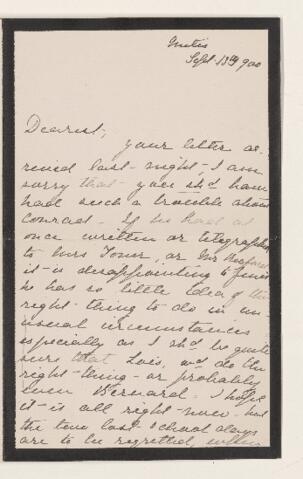 Metis
Sept 13th 900
Dearest,
your letter ar-
rived last-night-, I am
sorry that you shd have
had such a trouble about
Conrad. If he had at
once written or telegraphed
to Mrs Tower, or Mr
it-is disappointing to find
he has so little idea of the
right-thing to do in un-
usual circumstances
especially as I shd be quite
sure that Lois, wd do the
right-thing-or probably
even Bernard. I hope
it-is all right-now-but
the two last-school days
are to be regretted,